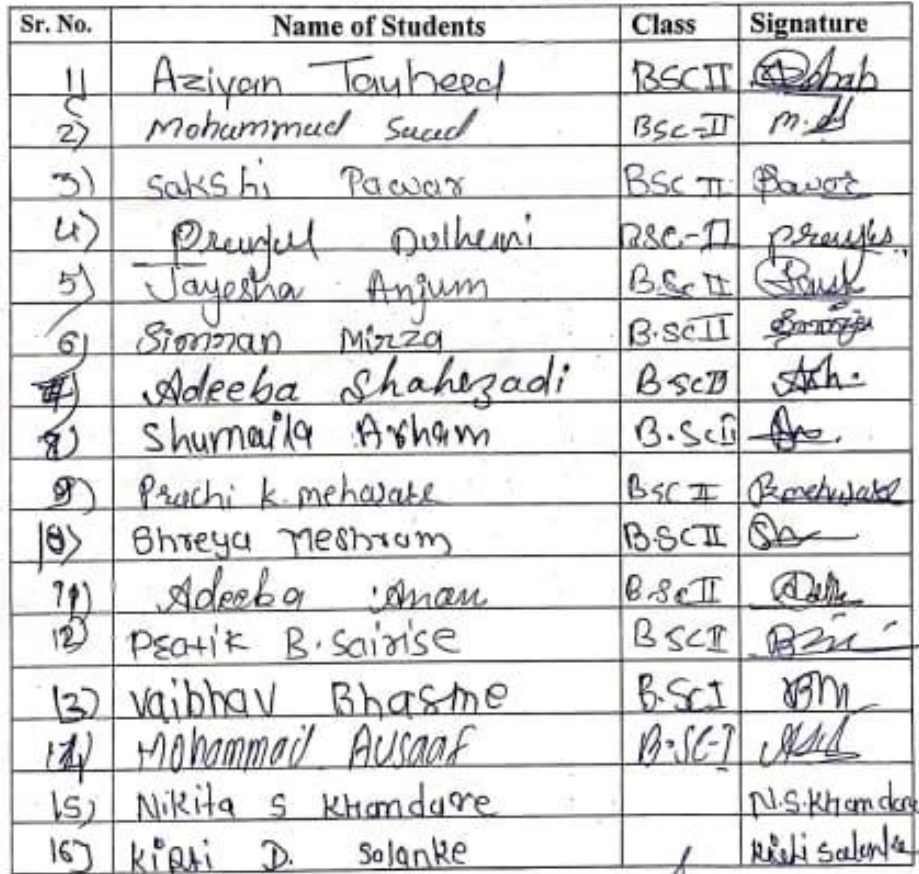 Sr. No. Name of Students Class Signature
1) Aziyan Tauheed BSC II
2) Mohammad Saad BSc-II M.
3) Sakshi Pawar BSC II Pawar
4) BSC-II
5) Jayesha Anjum B.Sc II
6) Simran Mirza B.SC II
7) Adeeba Shahezadi B SC II Ash.
8) Shumaila Arham B.Sc II
9) Prachi K. mehware BSC II
10) Shreya Meshram BSC II
11) Adeeba Aman B.Sc II
12) Pratik B. Sairise B SC II
13) Vaibhav Bhasme B.SC I BM
14) Mohammad Ausaaf B.SC-I
15) Nikita S Khandare N.S.Khandare
16) Kirti D. Solanke Kirti Solanke